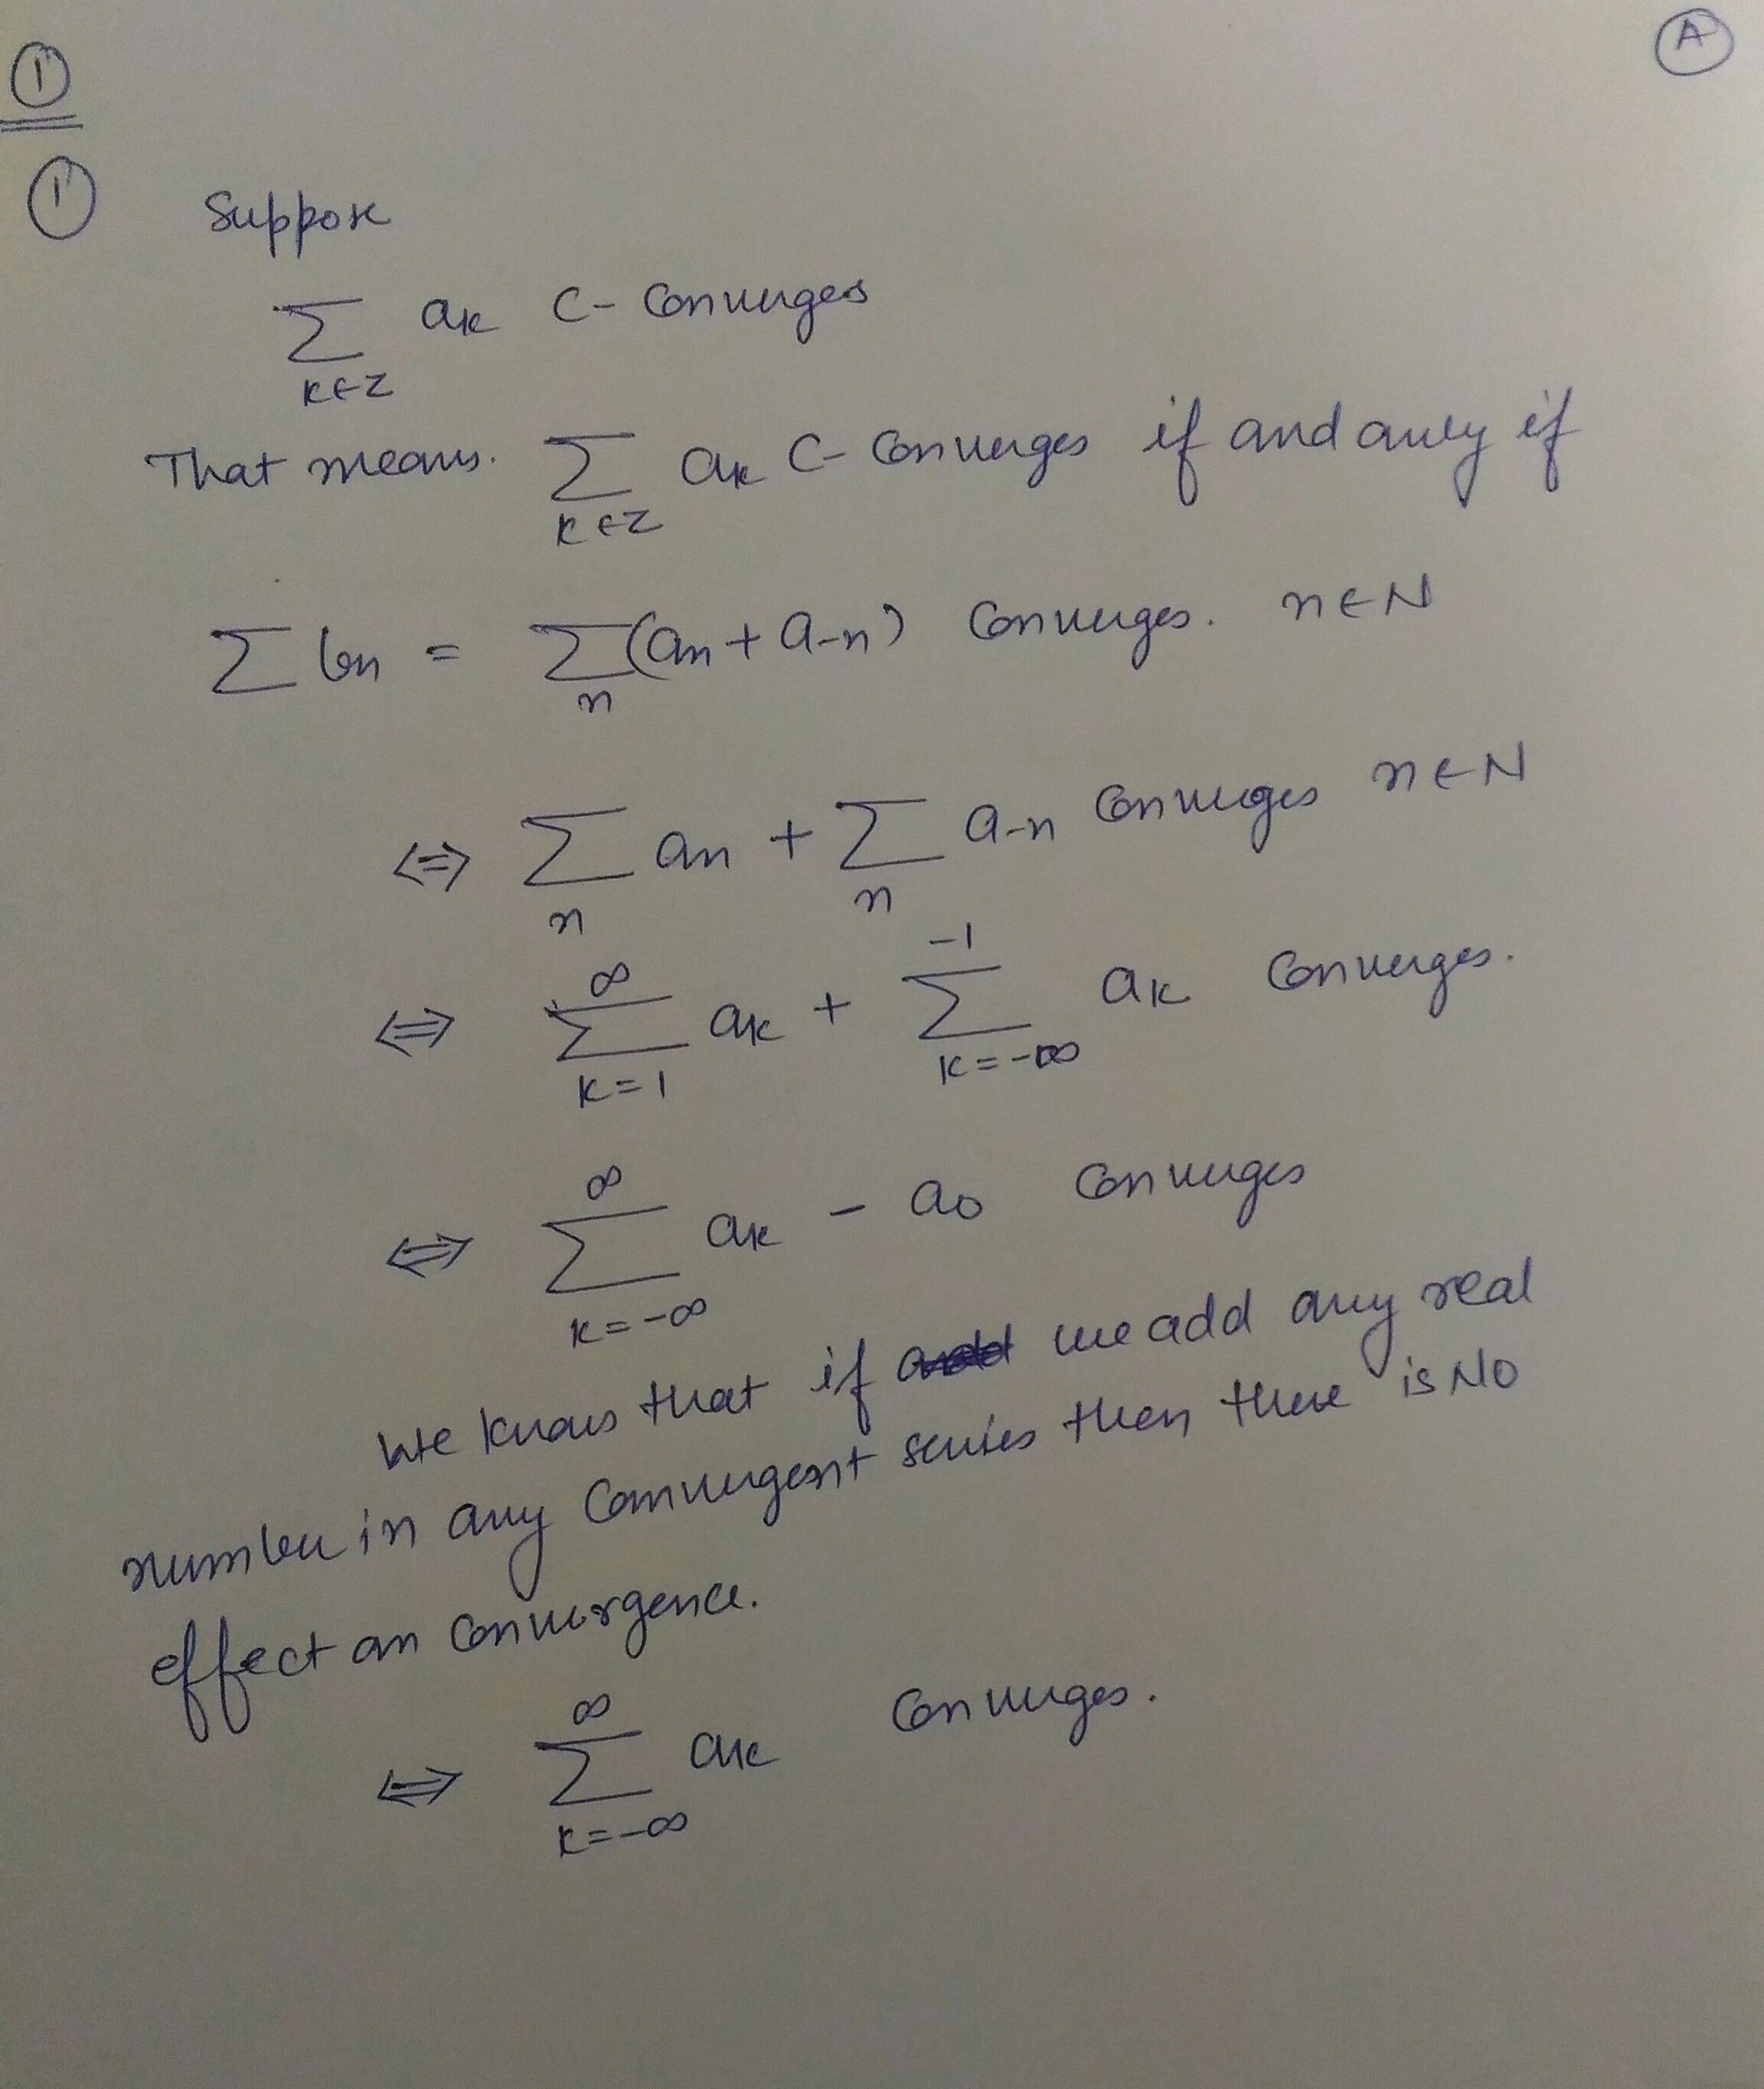 A
1
1 Suppose
∑ ak C-Converges
k∈Z
That means. ∑ ak C-Converges if and only if
k∈Z
∑ bn = ∑(an + a-n) Converges. n∈N
n
⇔ ∑ an + ∑ a-n Converges n∈N
n n
⇔ ∞∑k=1 ak + -1∑k=-∞ ak Converges.
⇔ ∞∑k=-∞ ak - a0 Converges
We know that if we add any real
number in any Convergent series then there is NO
effect on Convergence.
⇔ ∞∑k=-∞ ak Converges.